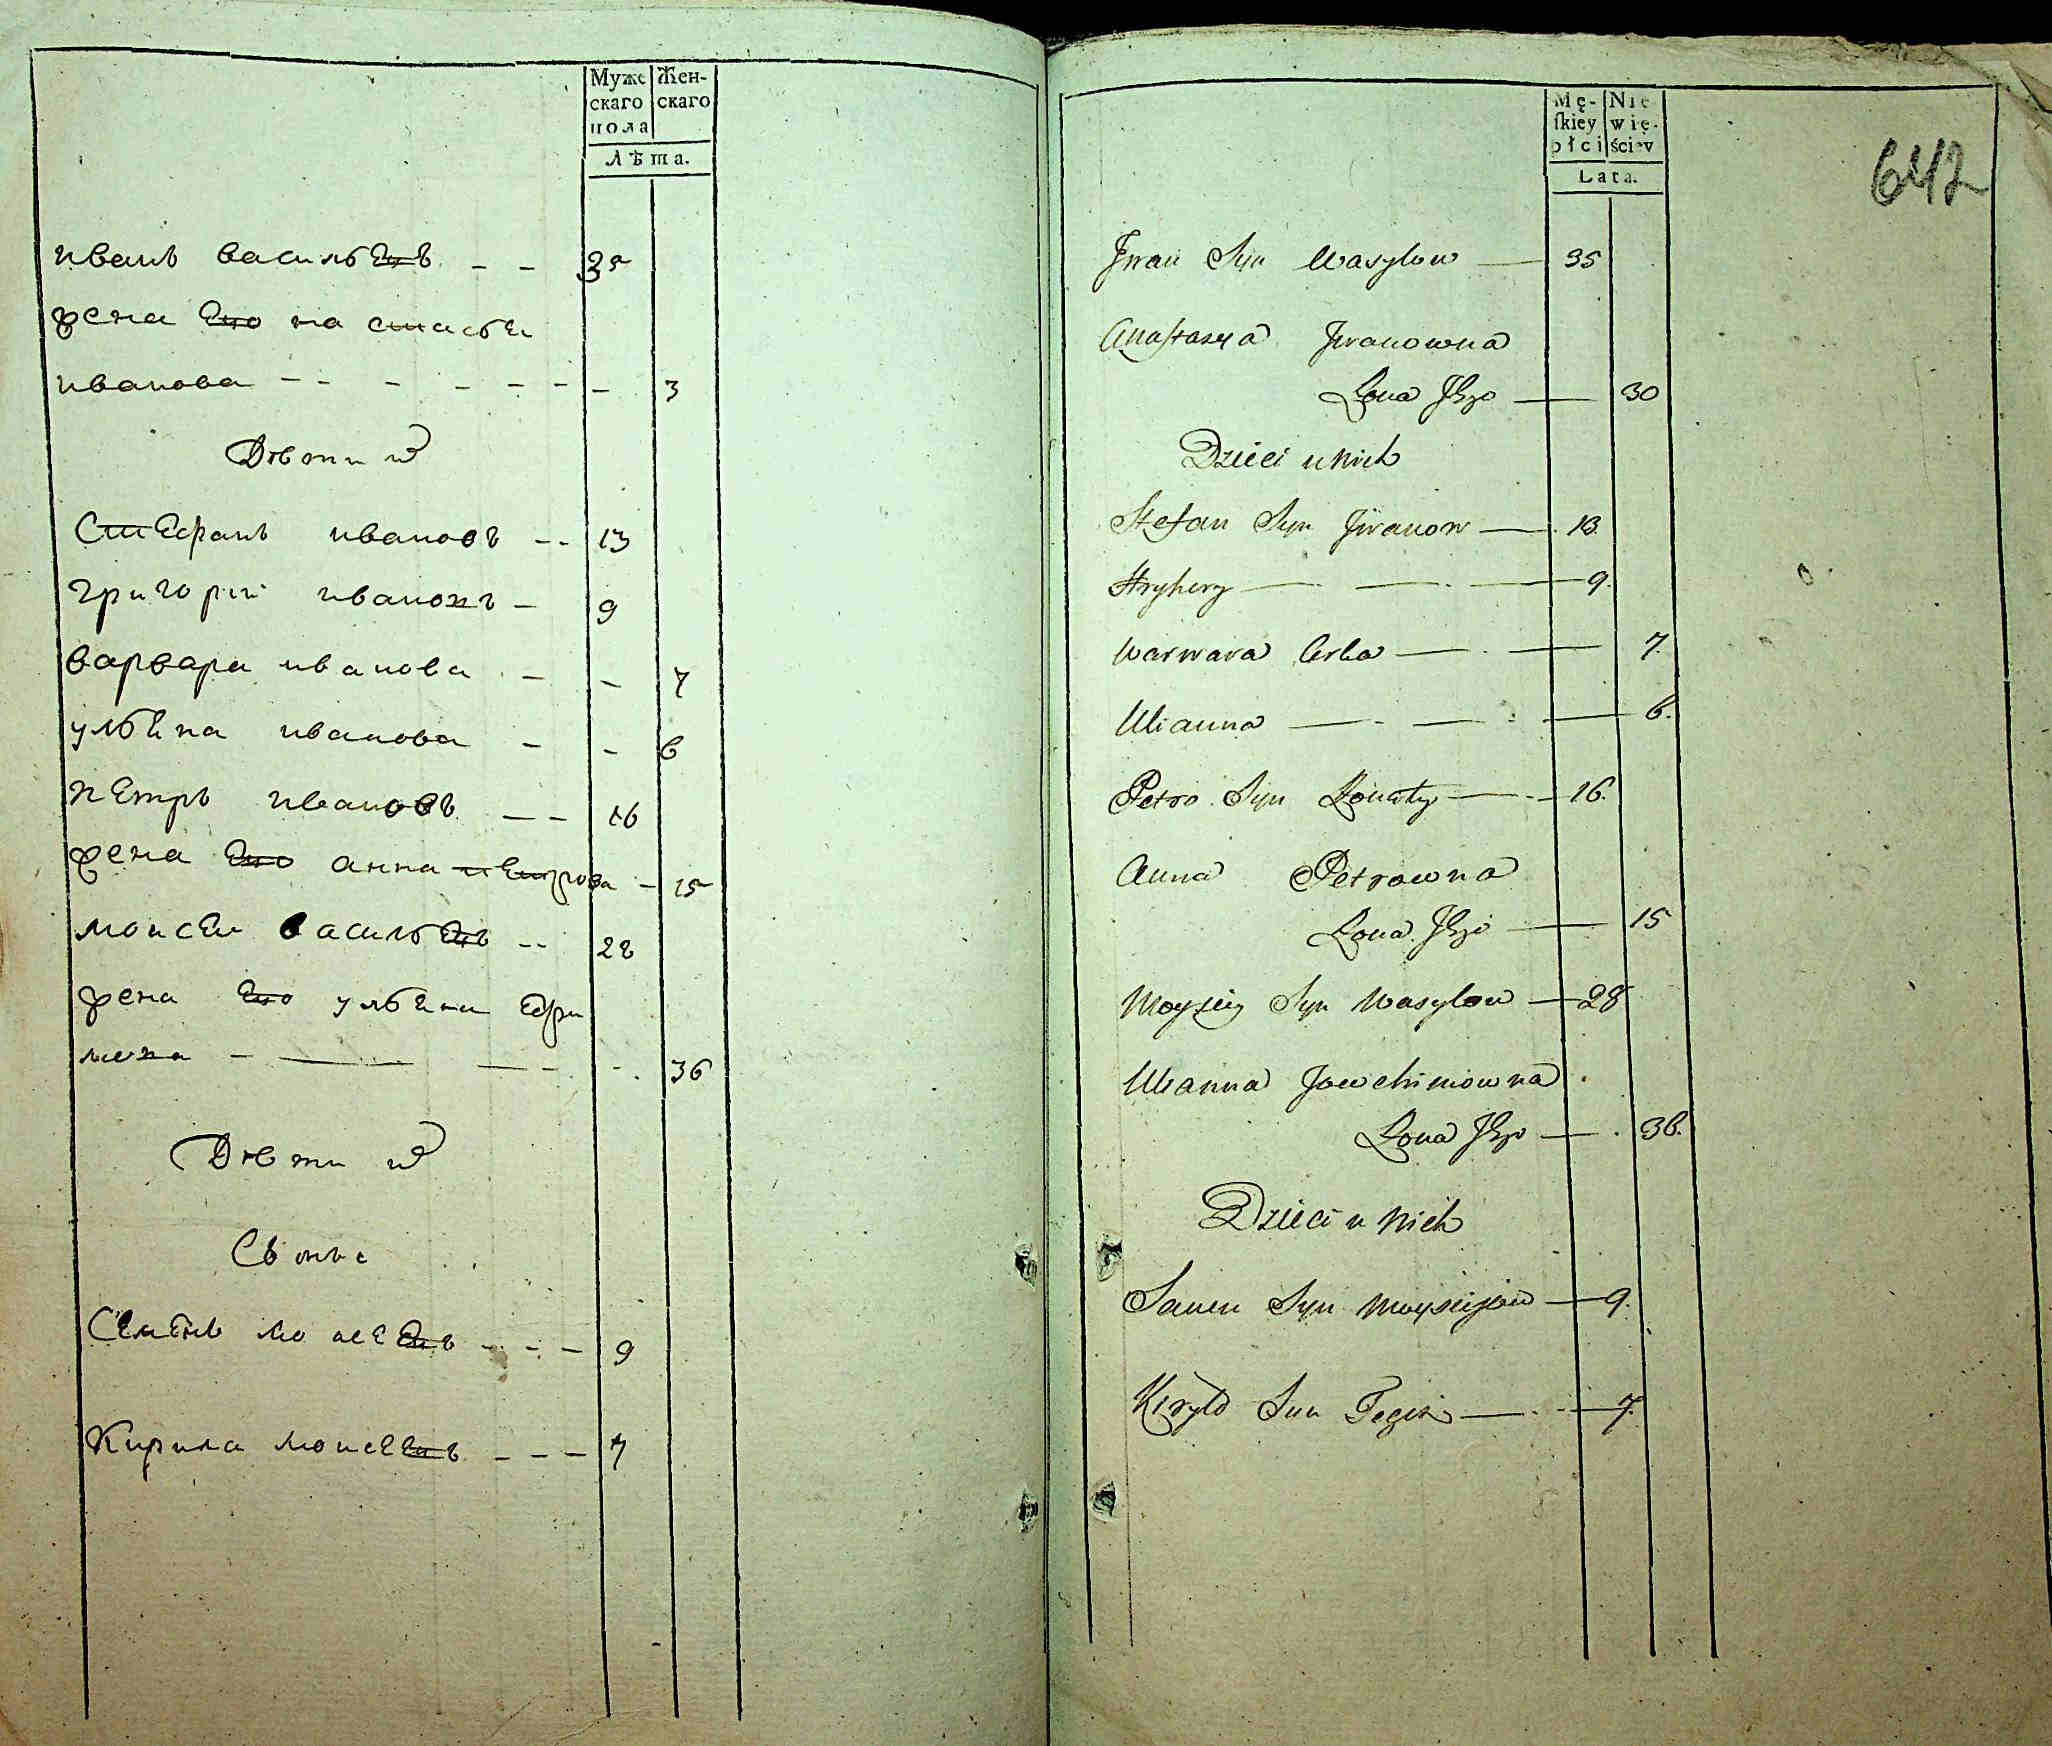 Муже
скаго
пола
Жен-
скаго
Лѣта.
иванъ васильевъ - - 35
жена его настасьѣ
иванова - - - - - - - 3
Дѣти их
Стефанъ ивановъ - - 13
григорий ивановъ - 9
варвара иванова - - 7
ульяна иванова - - 6
петръ ивановъ - - 16
жена его анна петрова - 15
моисеи васильевъ - - 28
жена его ульяна ефи
мова - - - - - 36
Дѣти их
Семенъ моисеевъ - - - 9
Кирила моисеевъ - - - 7
Mę-
skiey
płci
Nie
wię-
ściey
Lata.
642
Jwan Syn Wasylow — 35
Anastazya Jwanowna
Żona Jego — 30
Dzieci u Nich
Stefan Syn Jwanow — 13
Hryhory — 9.
Warwara Corka — 7.
Ulianna — 6.
Petro Syn — 16.
Anna Petrowna
Żona Jego — 15
Moysiey Syn Wasylow — 28
Ulianna Jowchimowna
Żona Jego — 36.
Dzieci u Nich
Syn Moysiejow — 9.
Kiryło Syn Tegoż — 7.